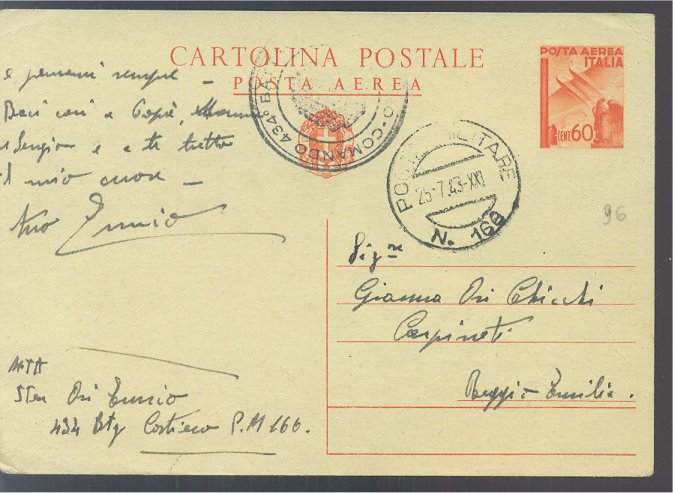 CARTOLINA POSTALE
POSTA AEREA
POSTA AEREA
ITALIA
CENT. 60
COMANDO 434 B
POSTA MILITARE
25·7.43-XXI
N. 166
96
e pensami sempre
Baci cari a Papà, Mamma
e Sergion e a te tutto
il mio cuore
tuo Ennio
Sig.ra
Gianna Ori Chicchi
Carpineti
Reggio Emilia.
MTA
STen Ori Ennio
434 Btg Costiero P.M 166.